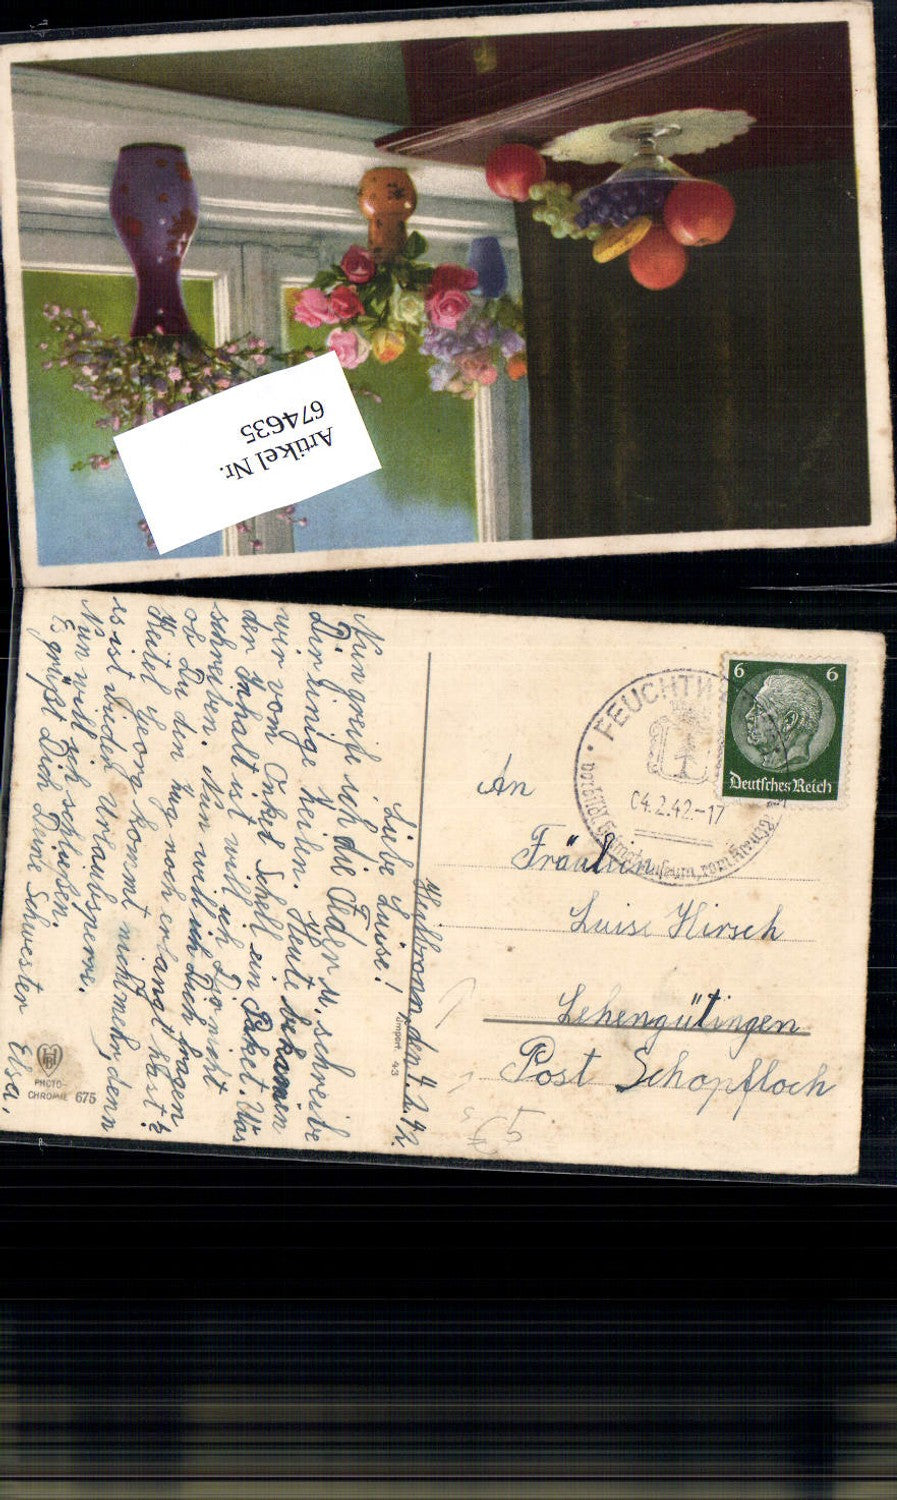 Artikel Nr.
674635
Heilbronn, den 4. 2. 42.
Liebe Luise!
Nun greife ich die Feder u. schreibe
Dir einige Zeilen. Heute bekamen
wir vom Onkel Schill ein Paket. Was
der Inhalt ist will ich Dir nicht
schreiben. Nun will ich Dich fragen
ob Du den
noch erlangt hast?
Weil Georg kommt nichtmehr, denn
es ist wieder Urlaubsperre.
Nun will ich schließen.
Es grüßt Dich Deine Schwester
Elsa.
PHOTO-
CHROMIE 675
Import 43
6 6
Deutsches Reich
FEUCHTW
04.2.42.-17
An
Fräulein
Luise Hirsch
Lehengütingen
Post Schopfloch